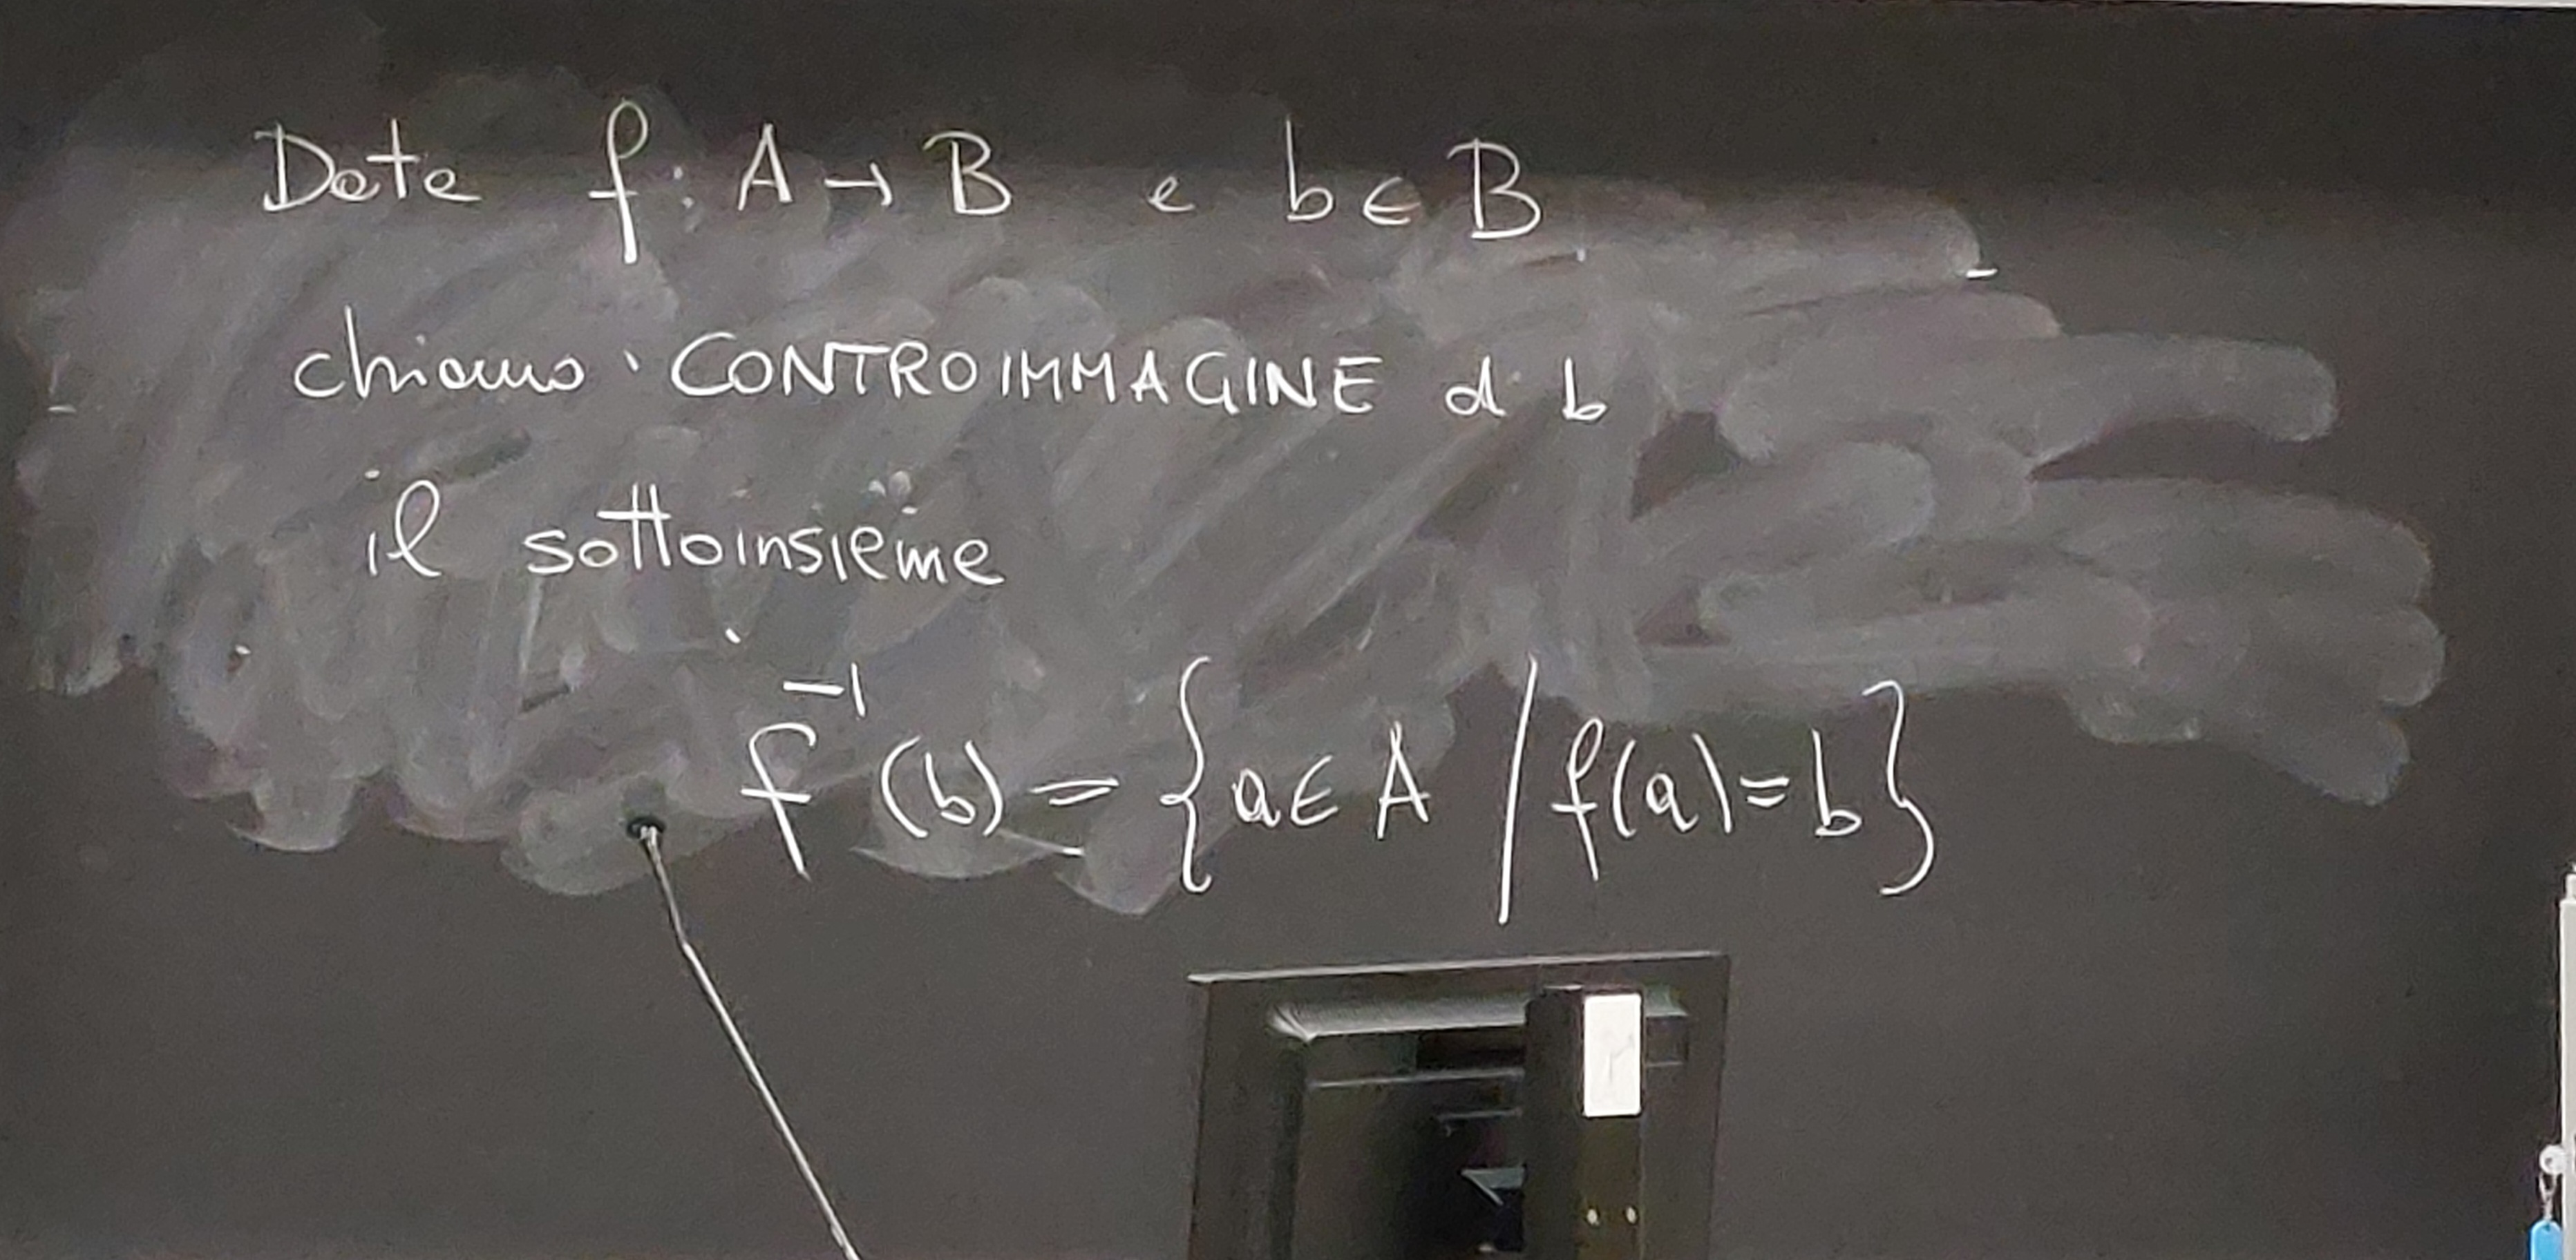 Data f: A → B e b ∈ B
chiamo CONTROIMMAGINE di b
il sottoinsieme
f⁻¹(b) = {a ∈ A / f(a) = b}